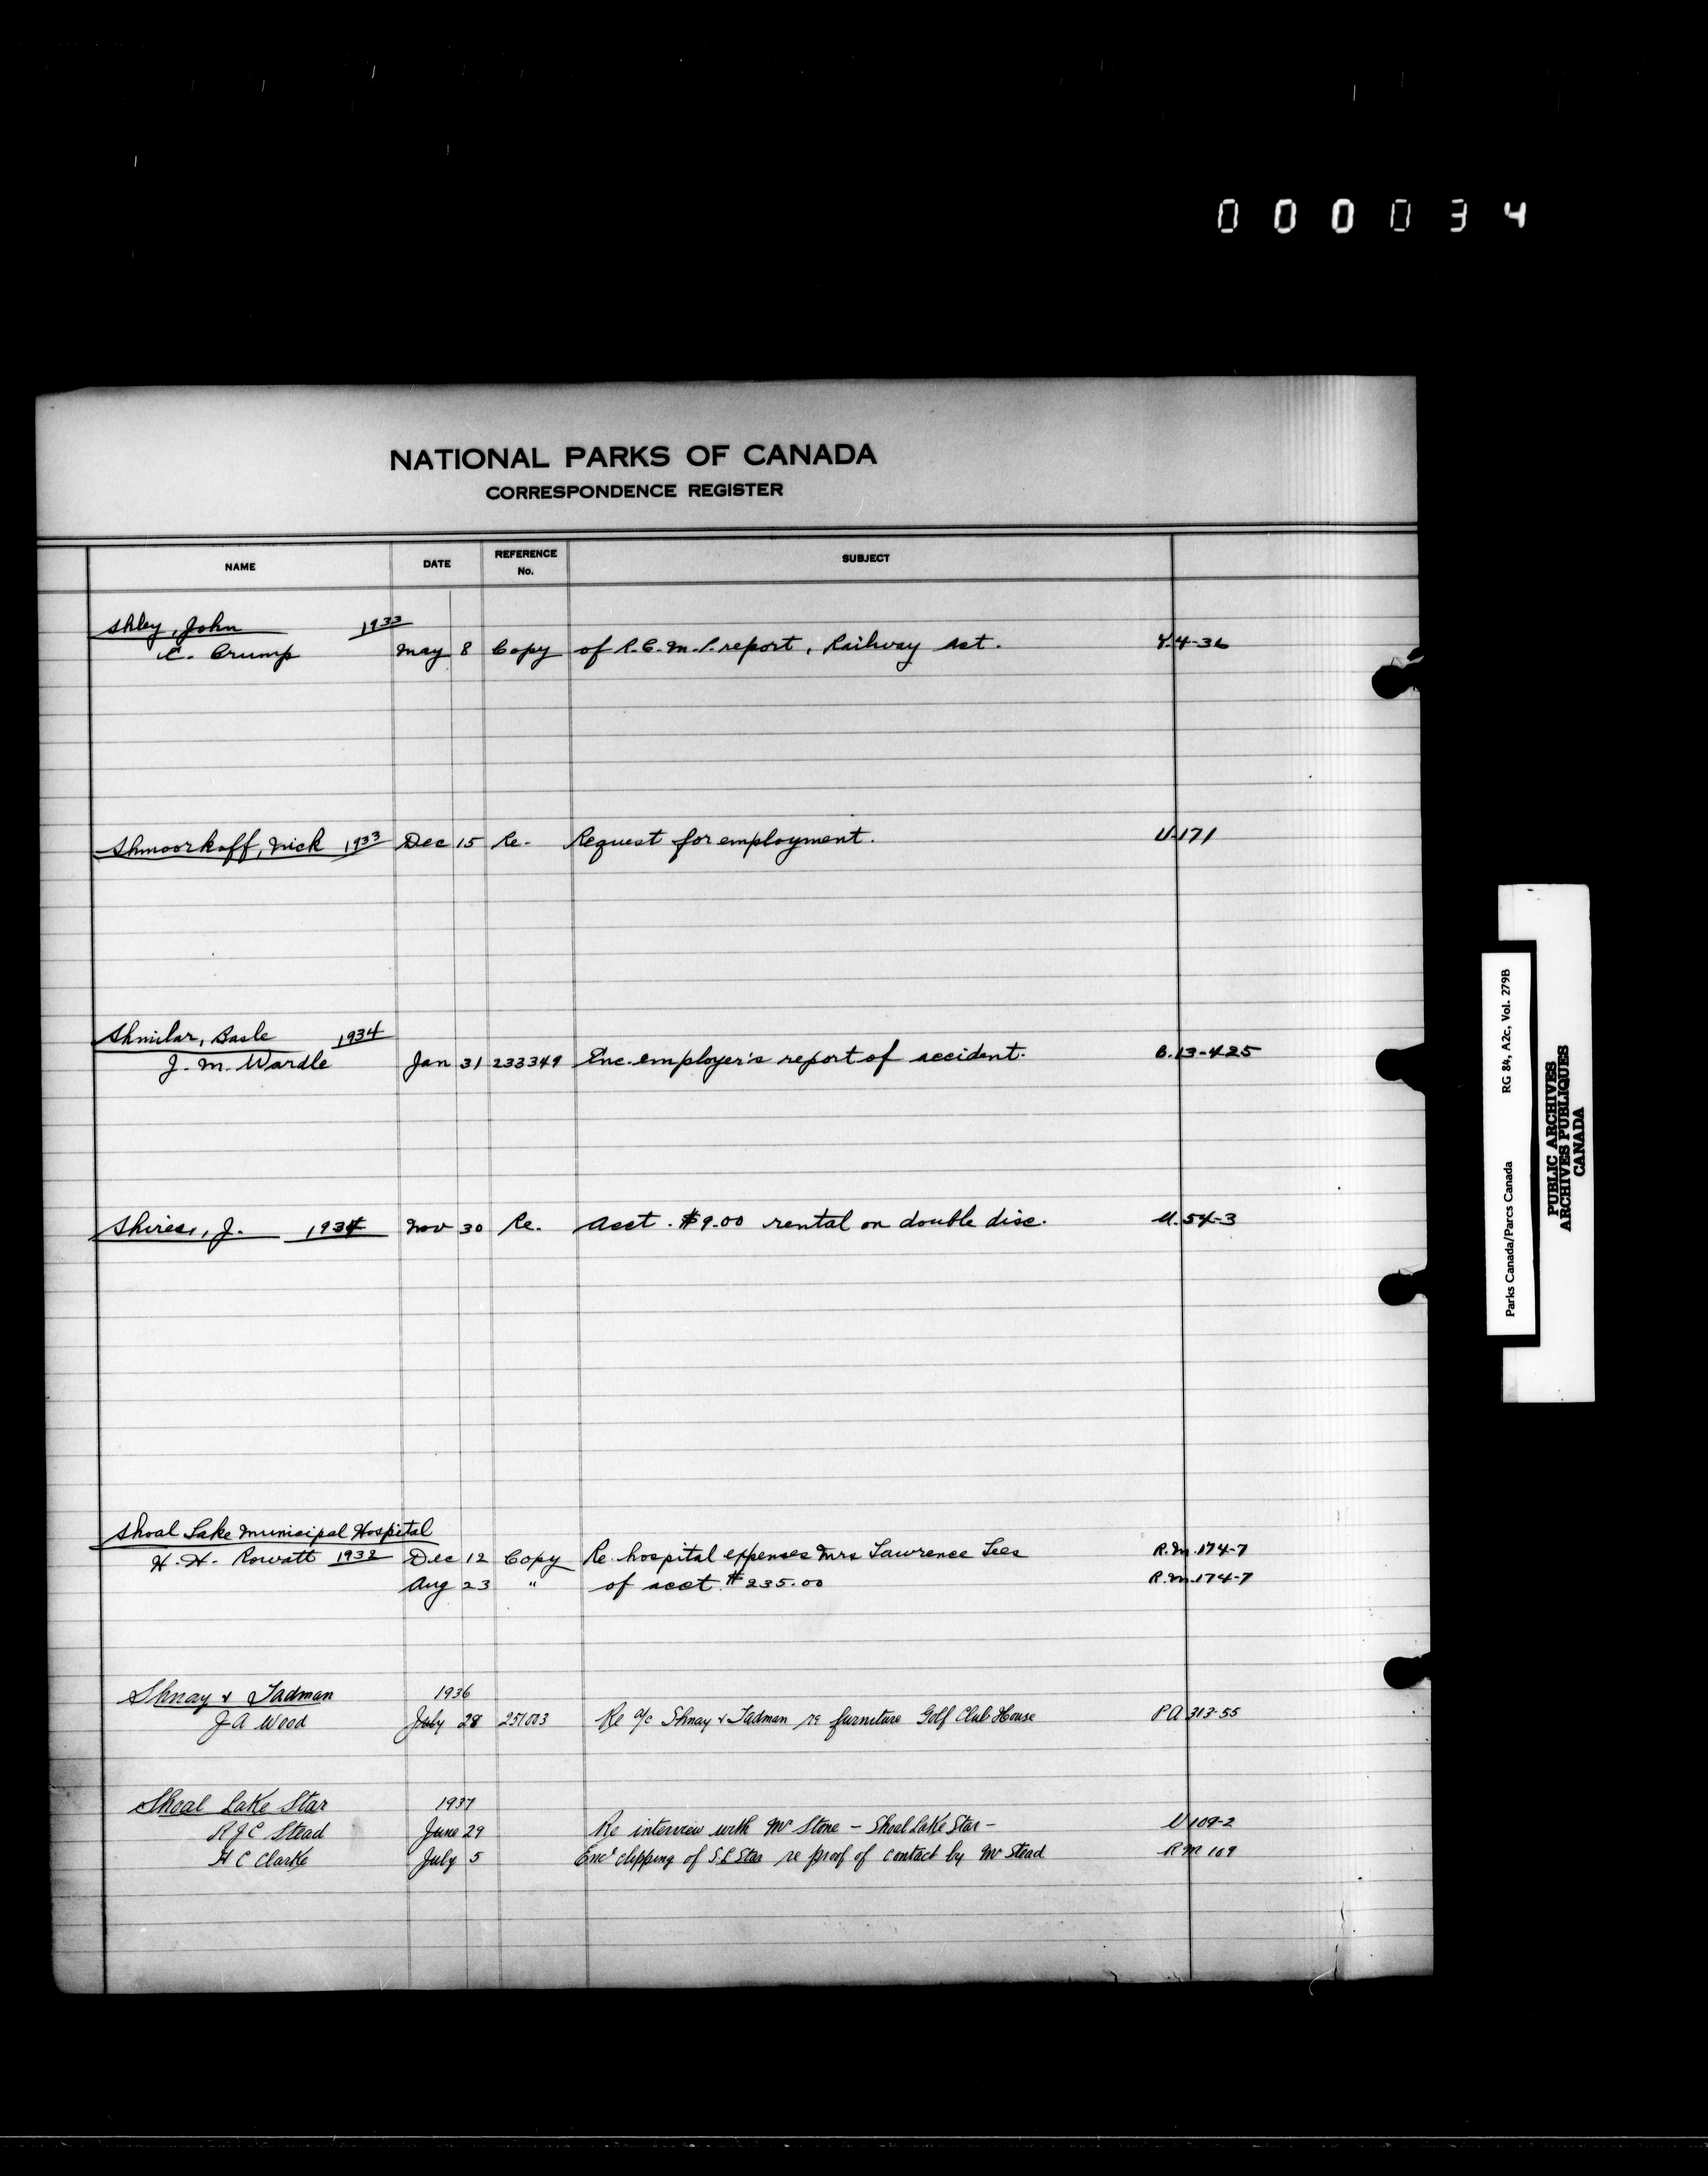 000034
NATIONAL PARKS OF CANADA
CORRESPONDENCE REGISTER
NAME DATE REFERENCE No. SUBJECT
Shley, John 1933
C. Crump May 8 Copy of R.C.M.P. report, Railway Act. Y.4-36
Shmoorkoff, Nick 1933 Dec 15 Re. Request for employment. U.171
Shmilar, Basle 1934
J. M. Wardle Jan 31 233349 Enc. employer's report of accident. B.13-425
Shires, J. 1934 Nov 30 Re. Acct. $9.00 rental on double disc. U.54-3
Shoal Lake Municipal Hospital
H. H. Rowatt 1932 Dec 12 Copy Re hospital expenses Mrs Lawrence Lees R.M.174-7
Aug 23 " of acct. $235.00 R.M.174-7
Shnay & Tadman 1936
J A Wood July 28 251003 Re a/c Shnay & Tadman re furniture Golf Club House PA 313-55
Shoal Lake Star 1937
R J C Stead June 29 Re interview with Mr Stone - Shoal Lake Star - U 109-2
H C Clarke July 5 Enc clipping of S.L Star re proof of contact by Mr Stead RM 109
Parks Canada/Parcs Canada RG 84, A2c, Vol. 279B
PUBLIC ARCHIVES
ARCHIVES PUBLIQUES
CANADA